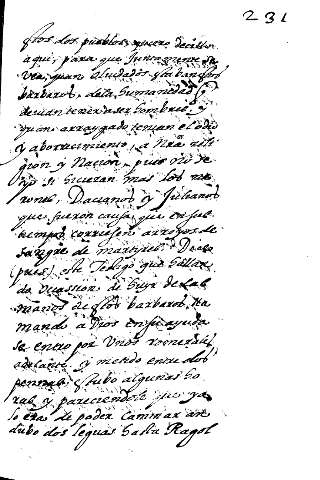 231
estos dos pueblos, quiero decirlo
aqui, para que juntamente se
vea, quan olvidados estaban estos
barbaros, de la humanidad q
devian tener a ser hombres, y
quan arraygado tenian el odio
y aborrecimiento, a Nra reli
gion y Nacion, pues no se
si hicieran mas los Ne
rones, Dacianos y Julianos
que fueron causa que en sus
tiempos corriesen arroyos de
sangre de martyres. Dice
(pues) este Testigo que hallan
do ocassion de huyr de las
manos de estos barbaros, lla
mando a Dios en su ayuda
se entro por unos
adelante y metido entre dos
peñas estubo algunas ho
ras, y pareciendole que ya
lo era de poder caminar an
dubo dos leguas hasta Ragol